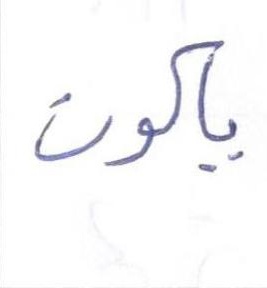 ياكون